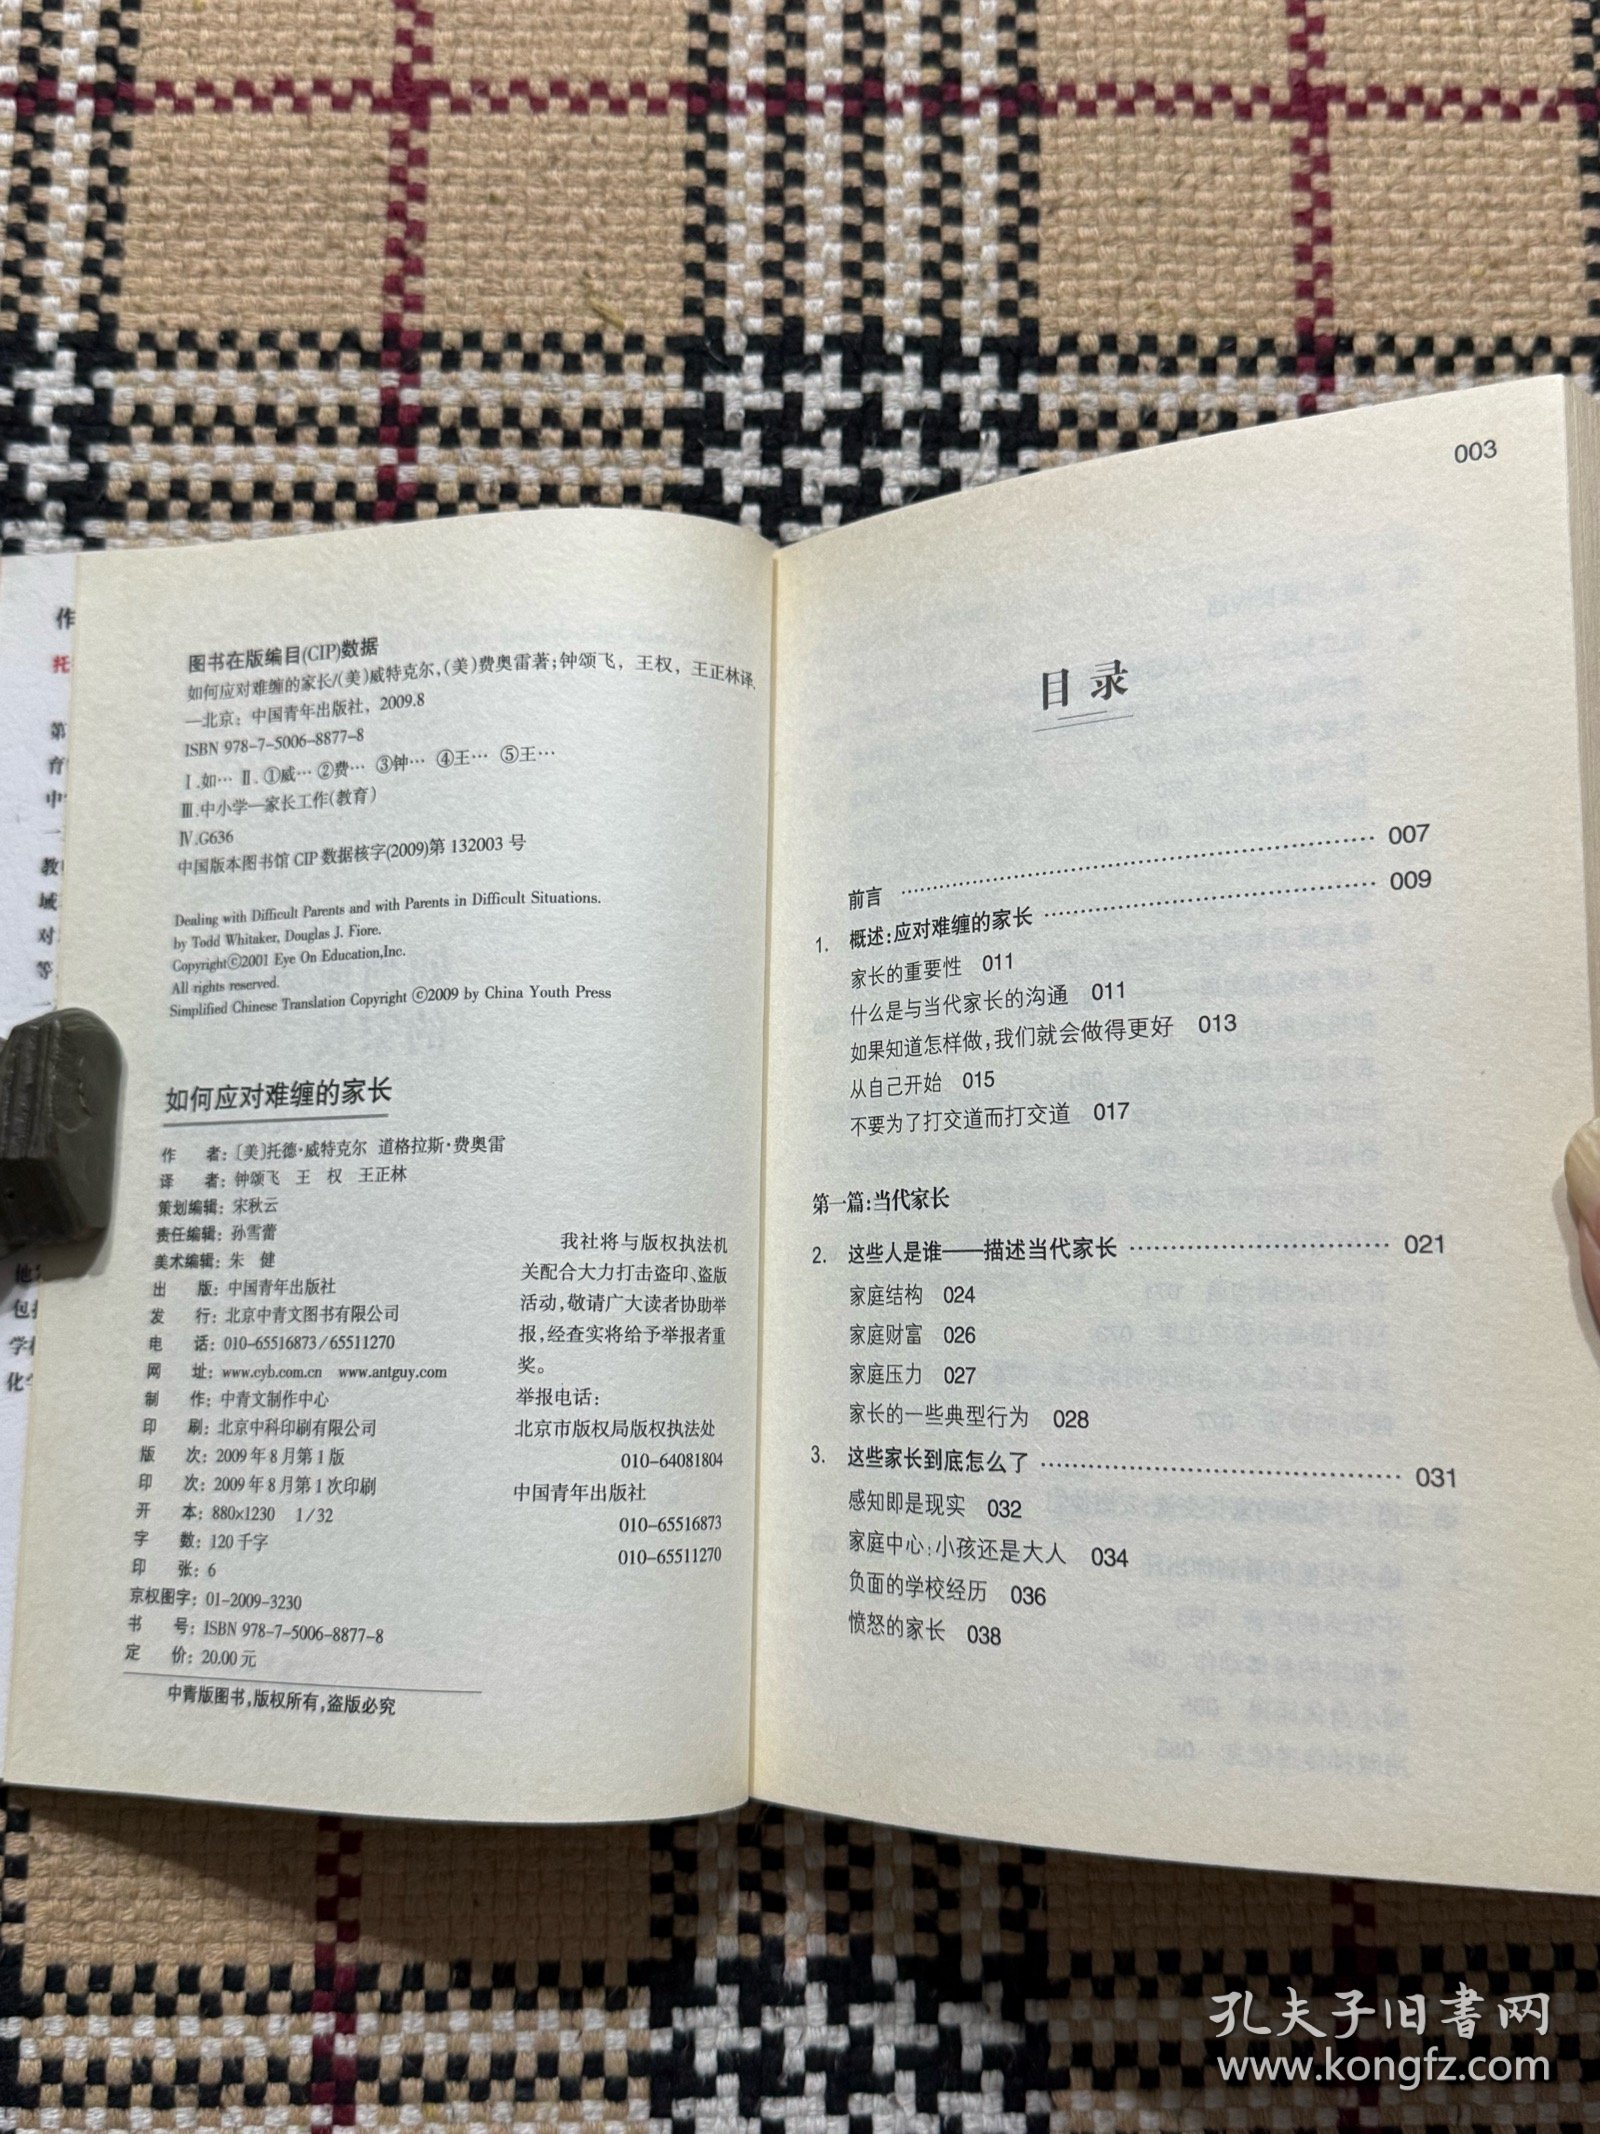 作
托
第
育
中
一
教
域
对
等
一
包
学
化
图书在版编目(CIP)数据
如何应对难缠的家长/(美)威特克尔,(美)费奥雷著;钟颂飞，王权，王正林译.
—北京：中国青年出版社，2009.8
ISBN 978-7-5006-8877-8
Ⅰ.如… Ⅱ.①威… ②费… ③钟… ④王… ⑤王…
Ⅲ.中小学—家长工作(教育)
Ⅳ.G636
中国版本图书馆 CIP 数据核字(2009)第 132003 号
Dealing with Difficult Parents and with Parents in Difficult Situations.
by Todd Whitaker, Douglas J. Fiore.
Copyright©2001 Eye On Education,Inc.
All rights reserved.
Simplified Chinese Translation Copyright ©2009 by China Youth Press
如何应对难缠的家长
作 者：〔美〕托德·威特克尔 道格拉斯·费奥雷
译 者：钟颂飞 王 权 王正林
策划编辑：宋秋云
责任编辑：孙雪蕾
美术编辑：朱 健
出 版：中国青年出版社
发 行：北京中青文图书有限公司
电 话：010-65516873/65511270
网 址：www.cyb.com.cn www.antguy.com
制 作：中青文制作中心
印 刷：北京中科印刷有限公司
版 次：2009年8月第1版
印 次：2009年8月第1次印刷
开 本：880×1230 1/32
字 数：120千字
印 张：6
京权图字：01-2009-3230
书 号：ISBN 978-7-5006-8877-8
定 价：20.00元
中青版图书,版权所有,盗版必究
我社将与版权执法机
关配合大力打击盗印、盗版
活动,敬请广大读者协助举
报,经查实将给予举报者重
奖。
举报电话：
北京市版权局版权执法处
010-64081804
中国青年出版社
010-65516873
010-65511270
003
目录
前言 ………… 007
1. 概述:应对难缠的家长 ………… 009
家长的重要性 011
什么是与当代家长的沟通 011
如果知道怎样做,我们就会做得更好 013
从自己开始 015
不要为了打交道而打交道 017
第一篇:当代家长
2. 这些人是谁——描述当代家长 ………… 021
家庭结构 024
家庭财富 026
家庭压力 027
家长的一些典型行为 028
3. 这些家长到底怎么了 ………… 031
感知即是现实 032
家庭中心:小孩还是大人 034
负面的学校经历 036
愤怒的家长 038
孔夫子旧书网
www.kongfz.com